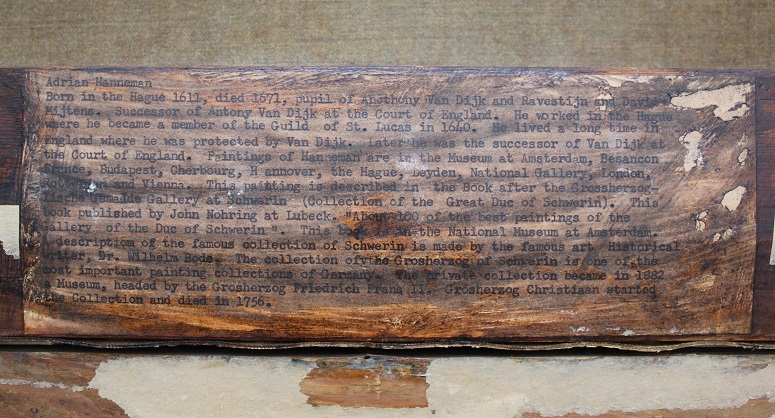 Adrian Hanneman
Born in the Hague 1611, died 1671, pupil of Anothony Van Dijk and Ravestijn and David
Mijtens. Successor of Antony Van Dijk at the Court of England. He worked in the Hague
where he became a member of the Guild of St. Lucas in 1640. He lived a long time in
England where he was protected by Van Dijk. Later he was the successor of Van Dijk at
the Court of England. Paintings of Hanneman are in the Museum at Amsterdam, Besancon
France, Budapest, Cherbourg, Hannover, the Hague, Leyden, National Gallery, London,
Rotterdam and Vienna. This painting is described in the Book after the Grossherzog-
lische Gemalde Gallery at Schwerin (Collection of the Great Duc of Schwerin). This
book published by John Nohring at Lubeck. "About 100 of the best paintings of the
Gallery of the Duc of Schwerin ". This book is in the National Museum at Amsterdam.
A description of the famous collection of Schwerin is made by the famous art Historical
writer, Dr. Wilhelm Bode. The collection of the Grosherzog of Schwerin is one of the
most important painting collections of Germany. The private collection became in 1882
a Museum, headed by the Grosherzog Friedrich Franz II. Grosherzog Christiaan started
the Collection and died in 1756.